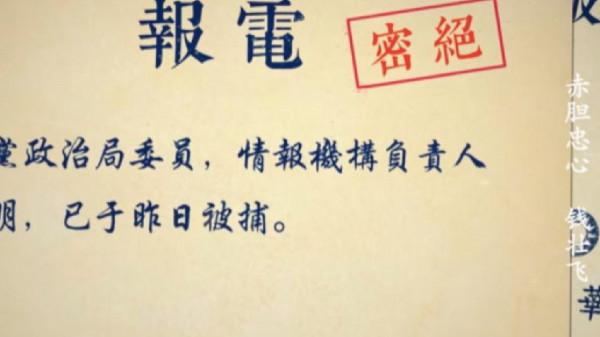 電報
絕密
黨政治局委員，情報機構負責人
明，已于昨日被捕。
赤胆忠心 钱壮飞
華